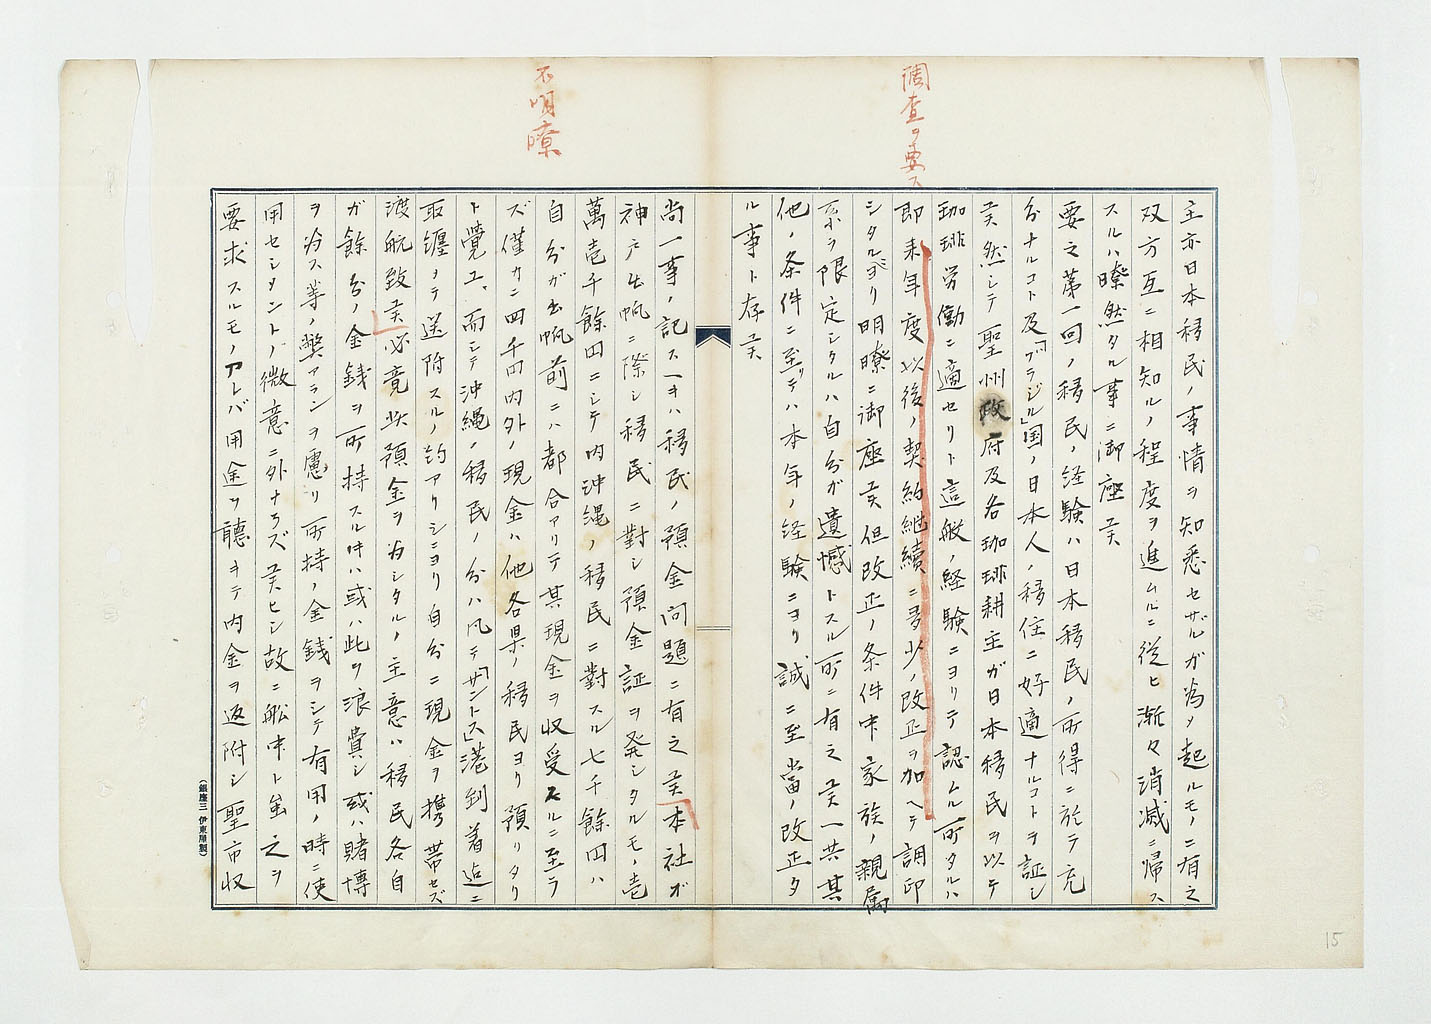 調査ヲ要ス
主亦日本移民ノ事情ヲ知悉セザルガ為メ起ルモノニ有之
双方互ニ相知ルノ程度ヲ進ムルニ從ヒ漸々消滅ニ帰ス
スルハ瞭然タル事ニ御座候
要之第一回ノ移民ノ経験ハ日本移民ノ所得ニ於テ充
分ナルコト及「ブラジル」国ノ日本人ノ移住ニ好適ナルコトヲ証シ
候然シテ聖州政府及各珈琲耕主ガ日本移民ヲ以テ
珈琲労働ニ適セリト這般ノ経験ニヨリテ認ムル所タルハ
即来年度以後ノ契約継續ニ多少ノ改正ヲ加ヘテ調印
シタルヨリ明瞭ニ御座候但改正ノ条件中家族ノ親属
系ヲ限定シタルハ自分ガ遺憾トスル所ニ有之候共其
他ノ条件ニ至リテハ本年ノ経験ニヨリ誠ニ至當ノ改正タ
ル事ト存候
不明瞭
尚一事ノ記スヘキハ移民ノ預金問題ニ有之候本社ガ
神戸出帆ニ際シ移民ニ對シ預金証ヲ発シタルモノ壱
萬壱千餘円ニシテ内沖縄ノ移民ニ對スル七千餘円ハ
自分ガ出帆前ニハ都合アリテ其現金ヲ収受スルニ至ラ
ズ僅カニ四千円内外ノ現金ハ他各県ノ移民ヨリ預リタリ
ト覺ユ、而シテ沖縄ノ移民ノ分ハ凡テ「サントス」港到着迄ニ
取纏メテ送附スルノ約アリシニヨリ自分ニ現金ヲ携帯セズ
渡航致候必竟此預金ヲ為シタルノ主意ハ移民各自
ガ餘分ノ金銭ヲ所持スル時ハ或ハ此ヲ浪費シ或ハ賭博
ヲ為ス等ノ弊アランヲ慮リ所持ノ金銭ヲシテ有用ノ時ニ使
用セシメントノ微意ニ外ナラズ候ヒシ故ニ舩中ト虽之ヲ
要求スルモノアレバ用途ヲ聽キテ内金ヲ返附シ聖市収
(銀座三 伊東屋製)
15